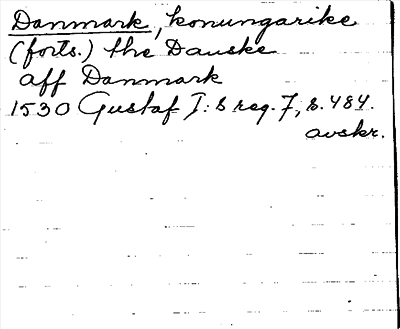 Danmark, konungarike
(forts.) the Danske
aff Danmark
1530 Gustaf I:s reg. 7, s. 484.
avskr.